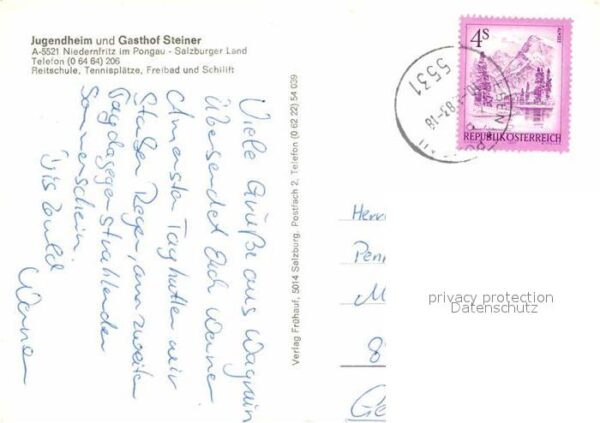 Jugendheim und Gasthof Steiner
A-5521 Niedernfritz im Pongau - Salzburger Land
Telefon (0 64 64) 206
Reitschule, Tennisplätze, Freibad und Schilift
Viele Grüße aus Wagrain
übersendet Euch Werner
Am ersten Tag hatten wir
starken Regen, am zweiten
Tag dagegen strahlender
Sonnenschein.
Bis bald
Werner
Verlag Frühauf, 5014 Salzburg, Postfach 2, Telefon (0 62 22) 54 039
4S
REPUBLIK ÖSTERREICH
5531
83-18
Herr
Penn
M
8
Ge
privacy protection
Datenschutz